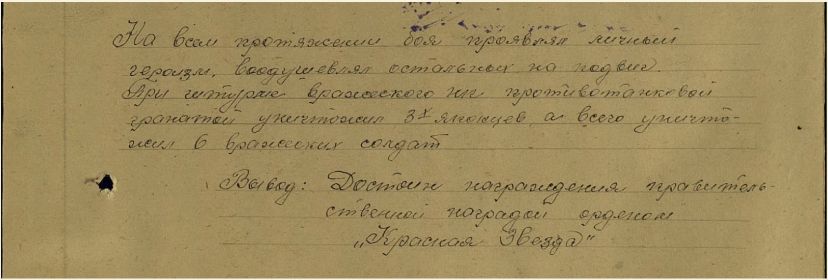 На всем протяжении боя проявлял личный
героизм, воодушевлял остальных на подвиг.
При штурме вражеского нп противотанковой
гранатой уничтожил 3х японцев, а всего уничто-
жил 6 вражеских солдат
Вывод: Достоин награждения правитель-
ственной наградой орденом
„Красная Звезда"